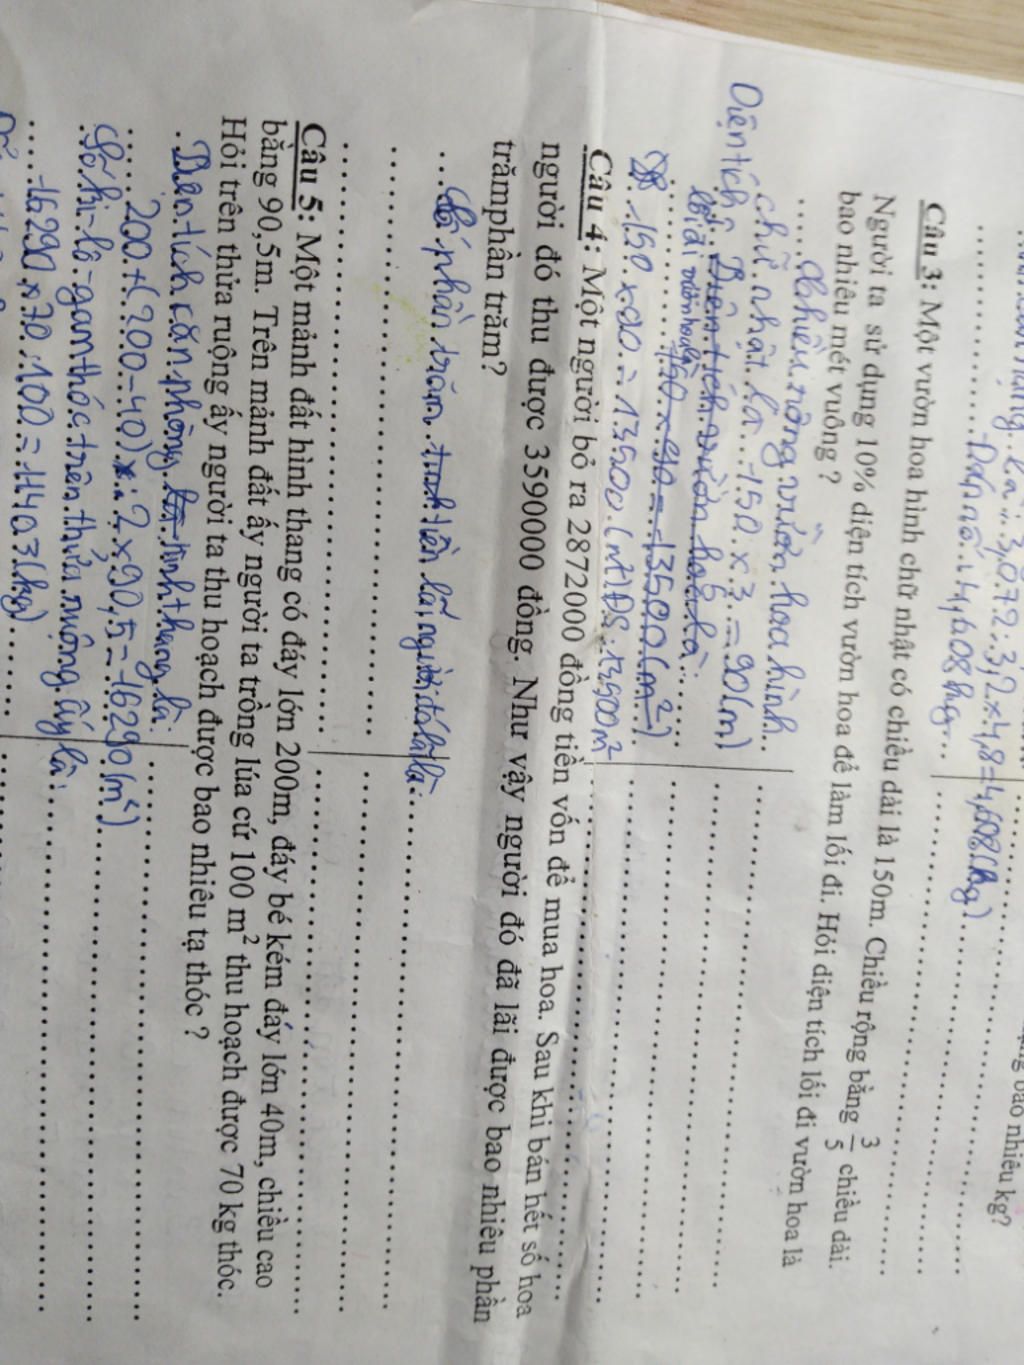 bao nhiêu kg?
là : 3,072 : 3,2 x 4,8 = 4,608 (kg)
Đáp số : 4,608 kg
Câu 3: Một vườn hoa hình chữ nhật có chiều dài là 150m. Chiều rộng bằng 3/5 chiều dài.
Người ta sử dụng 10% diện tích vườn hoa để làm lối đi. Hỏi diện tích lối đi vườn hoa là
bao nhiêu mét vuông ?
Chiều rộng vườn hoa hình
chữ nhật là 150 x 3 = 90 (m)
Diện tích Diện tích vườn hoa là
lối đi vườn hoa là
150 x 90 = 13500 (m²)
150 x 90 = 13500 (m²) ĐS : 13500 m²
Câu 4: Một người bỏ ra 2872000 đồng tiền vốn để mua hoa. Sau khi bán hết số hoa
người đó thu được 3590000 đồng. Như vậy người đó đã lãi được bao nhiêu phần
trămphần trăm?
Số phần trăm tiền lãi người đó là
Câu 5: Một mảnh đất hình thang có đáy lớn 200m, đáy bé kém đáy lớn 40m, chiều cao
bằng 90,5m. Trên mảnh đất ấy người ta trồng lúa cứ 100 m² thu hoạch được 70 kg thóc.
Hỏi trên thửa ruộng ấy người ta thu hoạch được bao nhiêu tạ thóc ?
Diện tích căn phòng hình thang là
200 + (200 - 40) : 2 x 90,5 = 16290 (m²)
Số ki-lô-gam thóc trên thửa ruộng ấy là :
16290 x 70 : 100 = 11403 (kg)